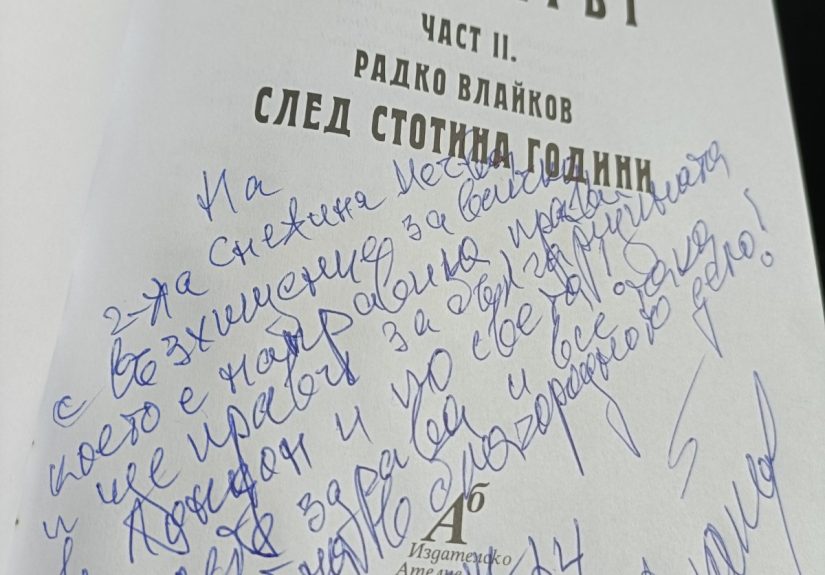 ЧАСТ II.
РАДКО ВЛАЙКОВ
СЛЕД СТОТИНА ГОДИНИ
На
г-жа Снежина
с възхищение за всичко,
което е направила, прави
и ще прави за българщината
в Лондон и по света!
здрава и все така
благородното дело!
Аб
Издателско
Ателие